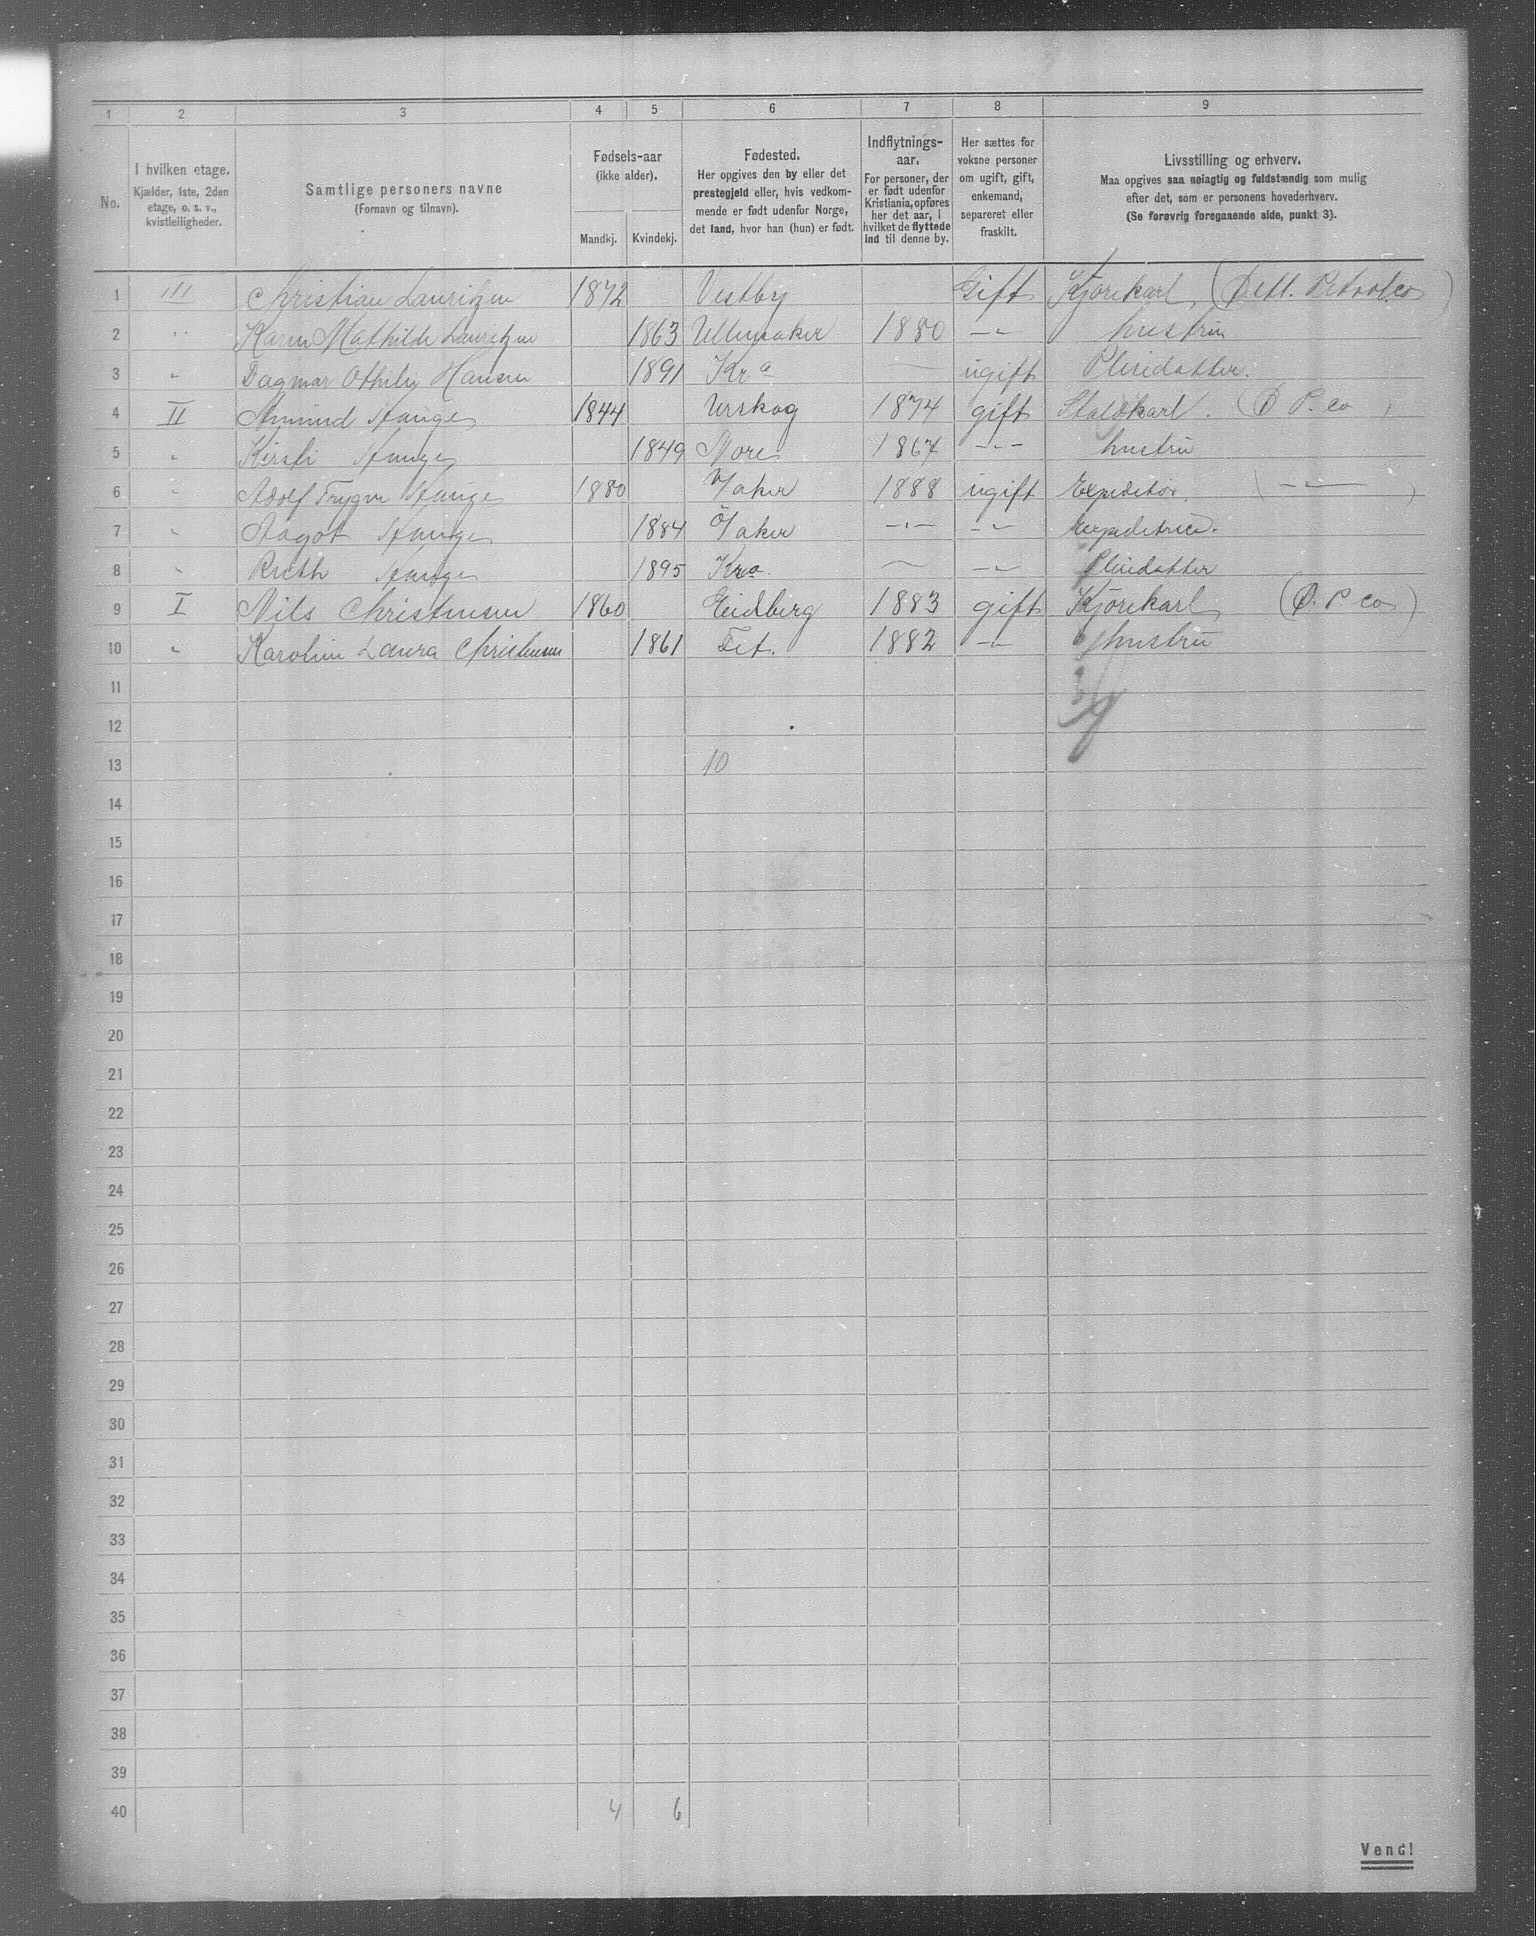 1 2 3 4 5 6 7 8 9
No. I hvilken etage. Kjælder, 1ste, 2den etage, o. s. v., kvistleiligheder. Samtlige personers navne (Fornavn og tilnavn). Fødsels-aar (ikke alder). Mandkj. Kvindekj. Fødested. Her opgives den by eller det prestegjeld eller, hvis vedkommende er født udenfor Norge, det land, hvor han (hun) er født. Indflytnings-aar. For personer, der er født udenfor Kristiania, opføres her det aar, i hvilket de flyttede ind til denne by. Her sættes for voksne personer om ugift, gift, enkemand, separeret eller fraskilt. Livsstilling og erhverv. Maa opgives saa nøiagtig og fuldstændig som mulig efter det, som er personens hovederhverv. (Se forøvrig foregaaende side, punkt 3).
1 III Christian Lauritzen 1872 Vestby Gift Kjørekarl (Østl. Petrol.co)
2 " Karen Mathilde Lauritzen 1863 Ullensaker 1880 -"- hustru
3 " Dagmar Othilie Hansen 1891 Kra — ugift Pleiedatter.
4 II Amund Hauge 1844 Urskog 1874 gift Staldkarl. (Ø P. co)
5 " Kirsti Hauge 1849 Nore 1867 -"- hustru
6 " Adolf Trygve Hauge 1880 V/aker 1888 ugift Expeditør. (-"-)
7 " Aagot Hauge 1884 Ö/aker -"- -"- Expeditrice.
8 " Ruth Hauge 1895 Kra. — -"- Pleiedatter
9 I Nils Christensen 1860 Eidberg 1883 gift Kjørekarl (Ø. P co)
10 " Karoline Laura Christensen 1861 Fet. 1882 -"- hustru
11
12
13 10
14
15
16
17
18
19
20
21
22
23
24
25
26
27
28
29
30
31
32
33
34
35
36
37
38
39
40 4 6
Vend!